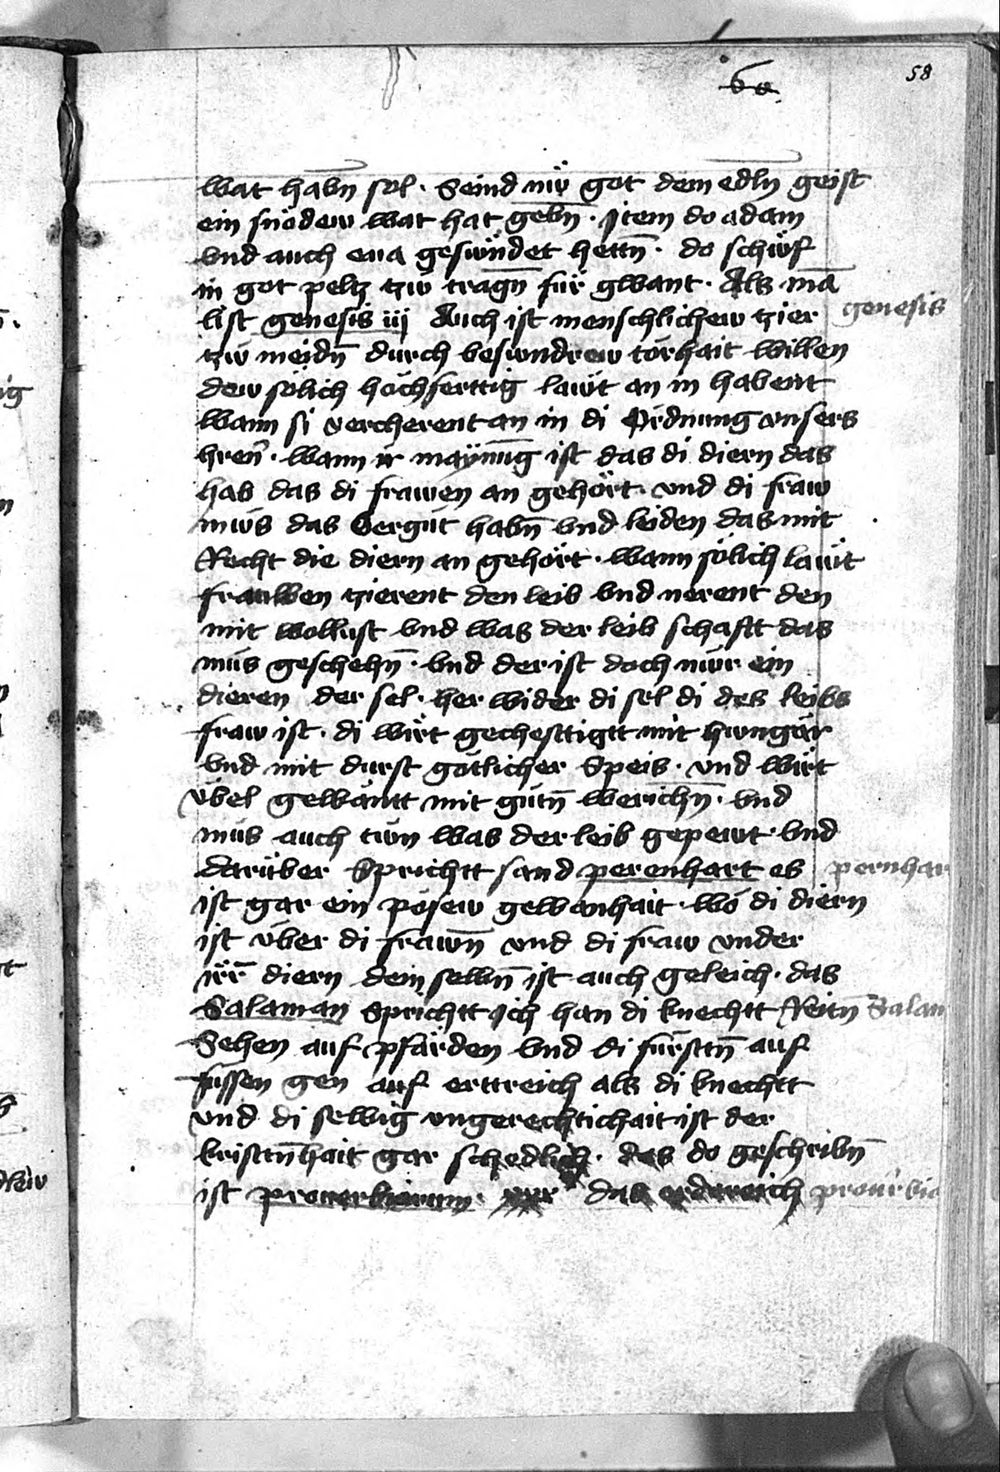 58
wat habn̄ sol · Seind nẅ got dem edln geist
ein snödew wat hat gebn̄ · Jtem do adam
vnd auch eua gesündet hettn̄ · do schüf
in got peltz tzw tragn̄ für gwant · Als mā
list genesis iij Auch ist menschlichew tzier
genesis
tzw meidn̄ durch besundrew torhait willen
dew sölich hochferttig lawt an in habent
wann si vercherent an in di Ordnung vnsers
hren̄ · wann ir maynūg ist das di diern das
hab das di frawen an gehört · vnd di fraw
mus das vergut habn̄ vnd leiden das mit
Recht die diern an gehört · wann sölich lawt
frauwen tzierent den leib vnd nerent den
mit wollust vnd was der leib schafft das
mus geschehn̄ · vnd der ist doch nwr ein
dieren der sel · her wider di sel di des leibs
fraw ist · di wirt gechesttigtt mit hwngar
vnd mit durst gotlicher Speis · vnd wirt
übel gewantt mit gutn̄ werichn̄ · vnd
mus auch twn was der leib gepewt · vnd
darüber Sprichtt sand perenhart es
pernhar
ist gar ein pösew gewanhait · wo di diern
ist über di frawn̄ vnd di fraw vnder
irr̄ diern dem selbn̄ ist auch geleich · das
Salaman Sprichtt ich han di knechtt Reitn̄
Salam
Sehen auf pfärden vnd di fürsttn̄ auf
füssen gen auf erttreich als di knechtt
vnd di selbig vngerechtichait ist der
kristtn̄hait gar schedlich · das do geschribn̄
ist prouerbiorum · das erdtreich
prouerbio